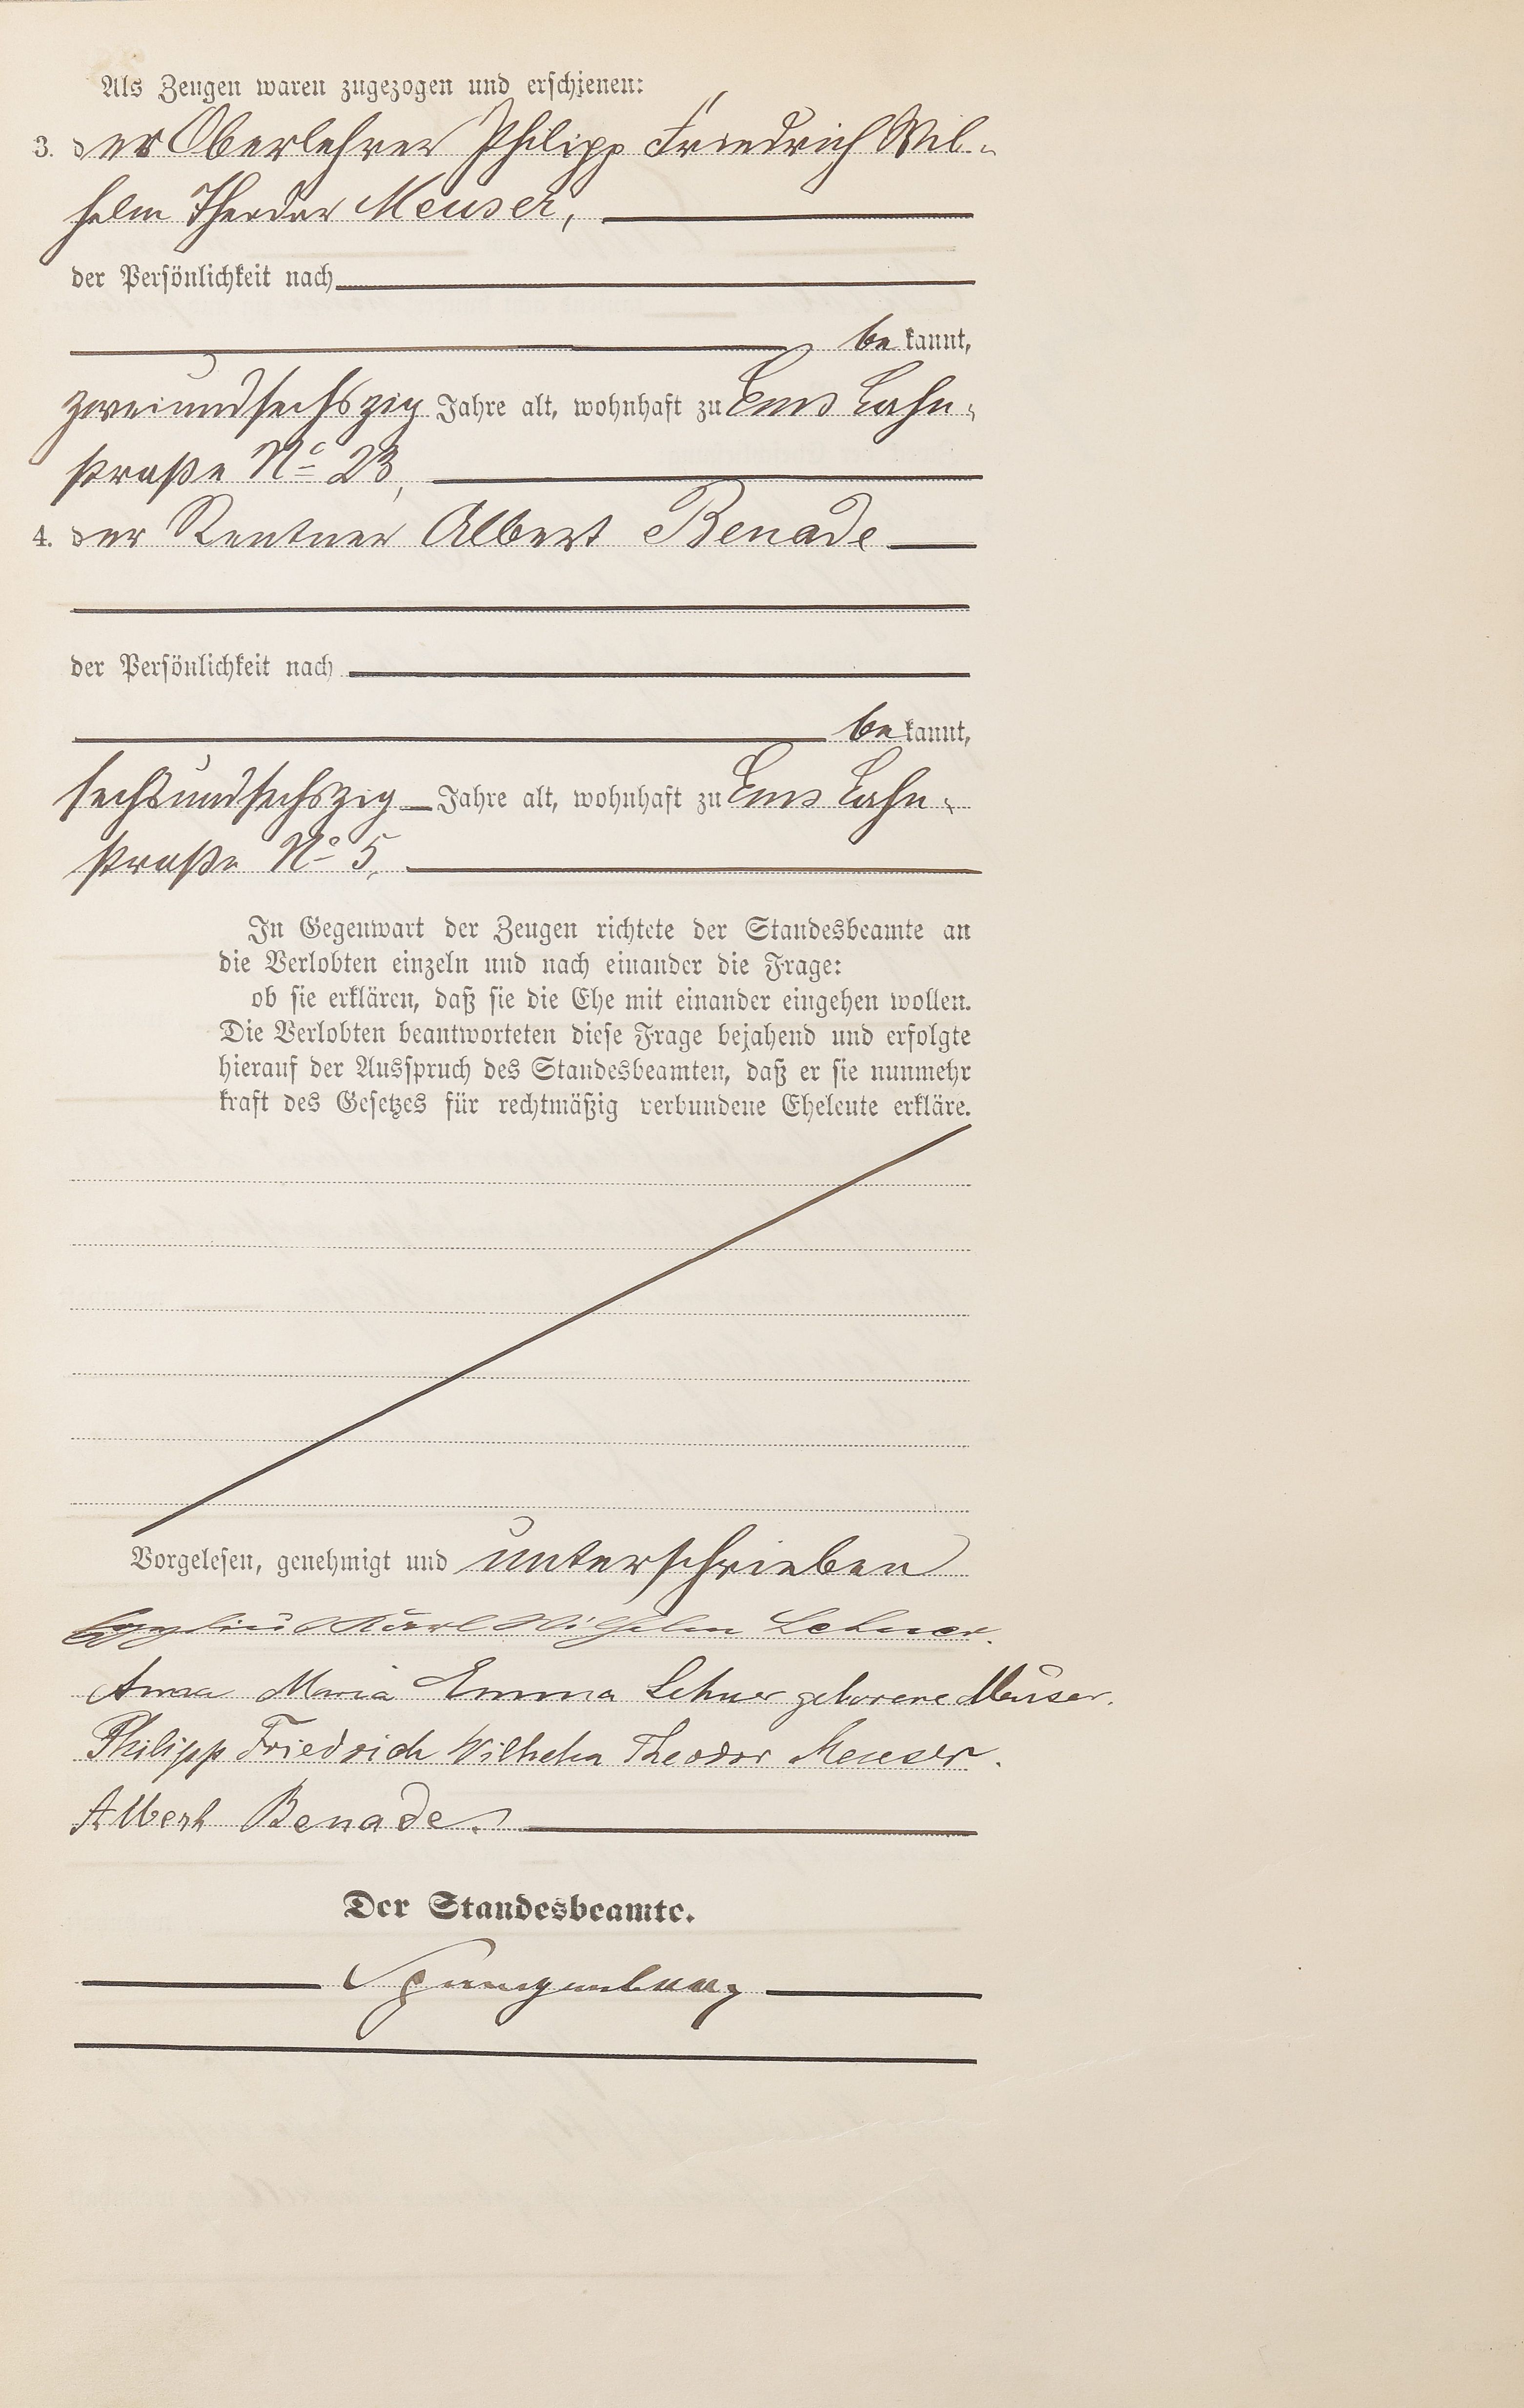 Als Zeugen waren zugezogen und erschienen:
3. der Oberlehrer Philipp Friedrich Wil-
helm Theodor Meuser,
der Persönlichkeit nach
be kannt,
zweiundsechszig Jahre alt, wohnhaft zu Ems Lahn-
straße No 23,
4. der Rentner Albert Benade
der Persönlichkeit nach
be kannt,
sechsundsechszig Jahre alt, wohnhaft zu Ems Lahn-
straße No 5,
In Gegenwart der Zeugen richtete der Standesbeamte an
die Verlobten einzeln und nach einander die Frage:
ob sie erklären, daß sie die Ehe mit einander eingehen wollen.
Die Verlobten beantworteten diese Frage bejahend und erfolgte
hierauf der Ausspruch des Standesbeamten, daß er sie nunmehr
kraft des Gesetzes für rechtmäßig verbundene Eheleute erkläre.
Vorgelesen, genehmigt und unterschrieben
Karl Wilhelm Lehner.
Anna Maria Emma Lehner geborene Meuser.
Philipp Friedrich Wilhelm Theodor Meuser.
Albert Benade.
Der Standesbeamte.
Spangenberg